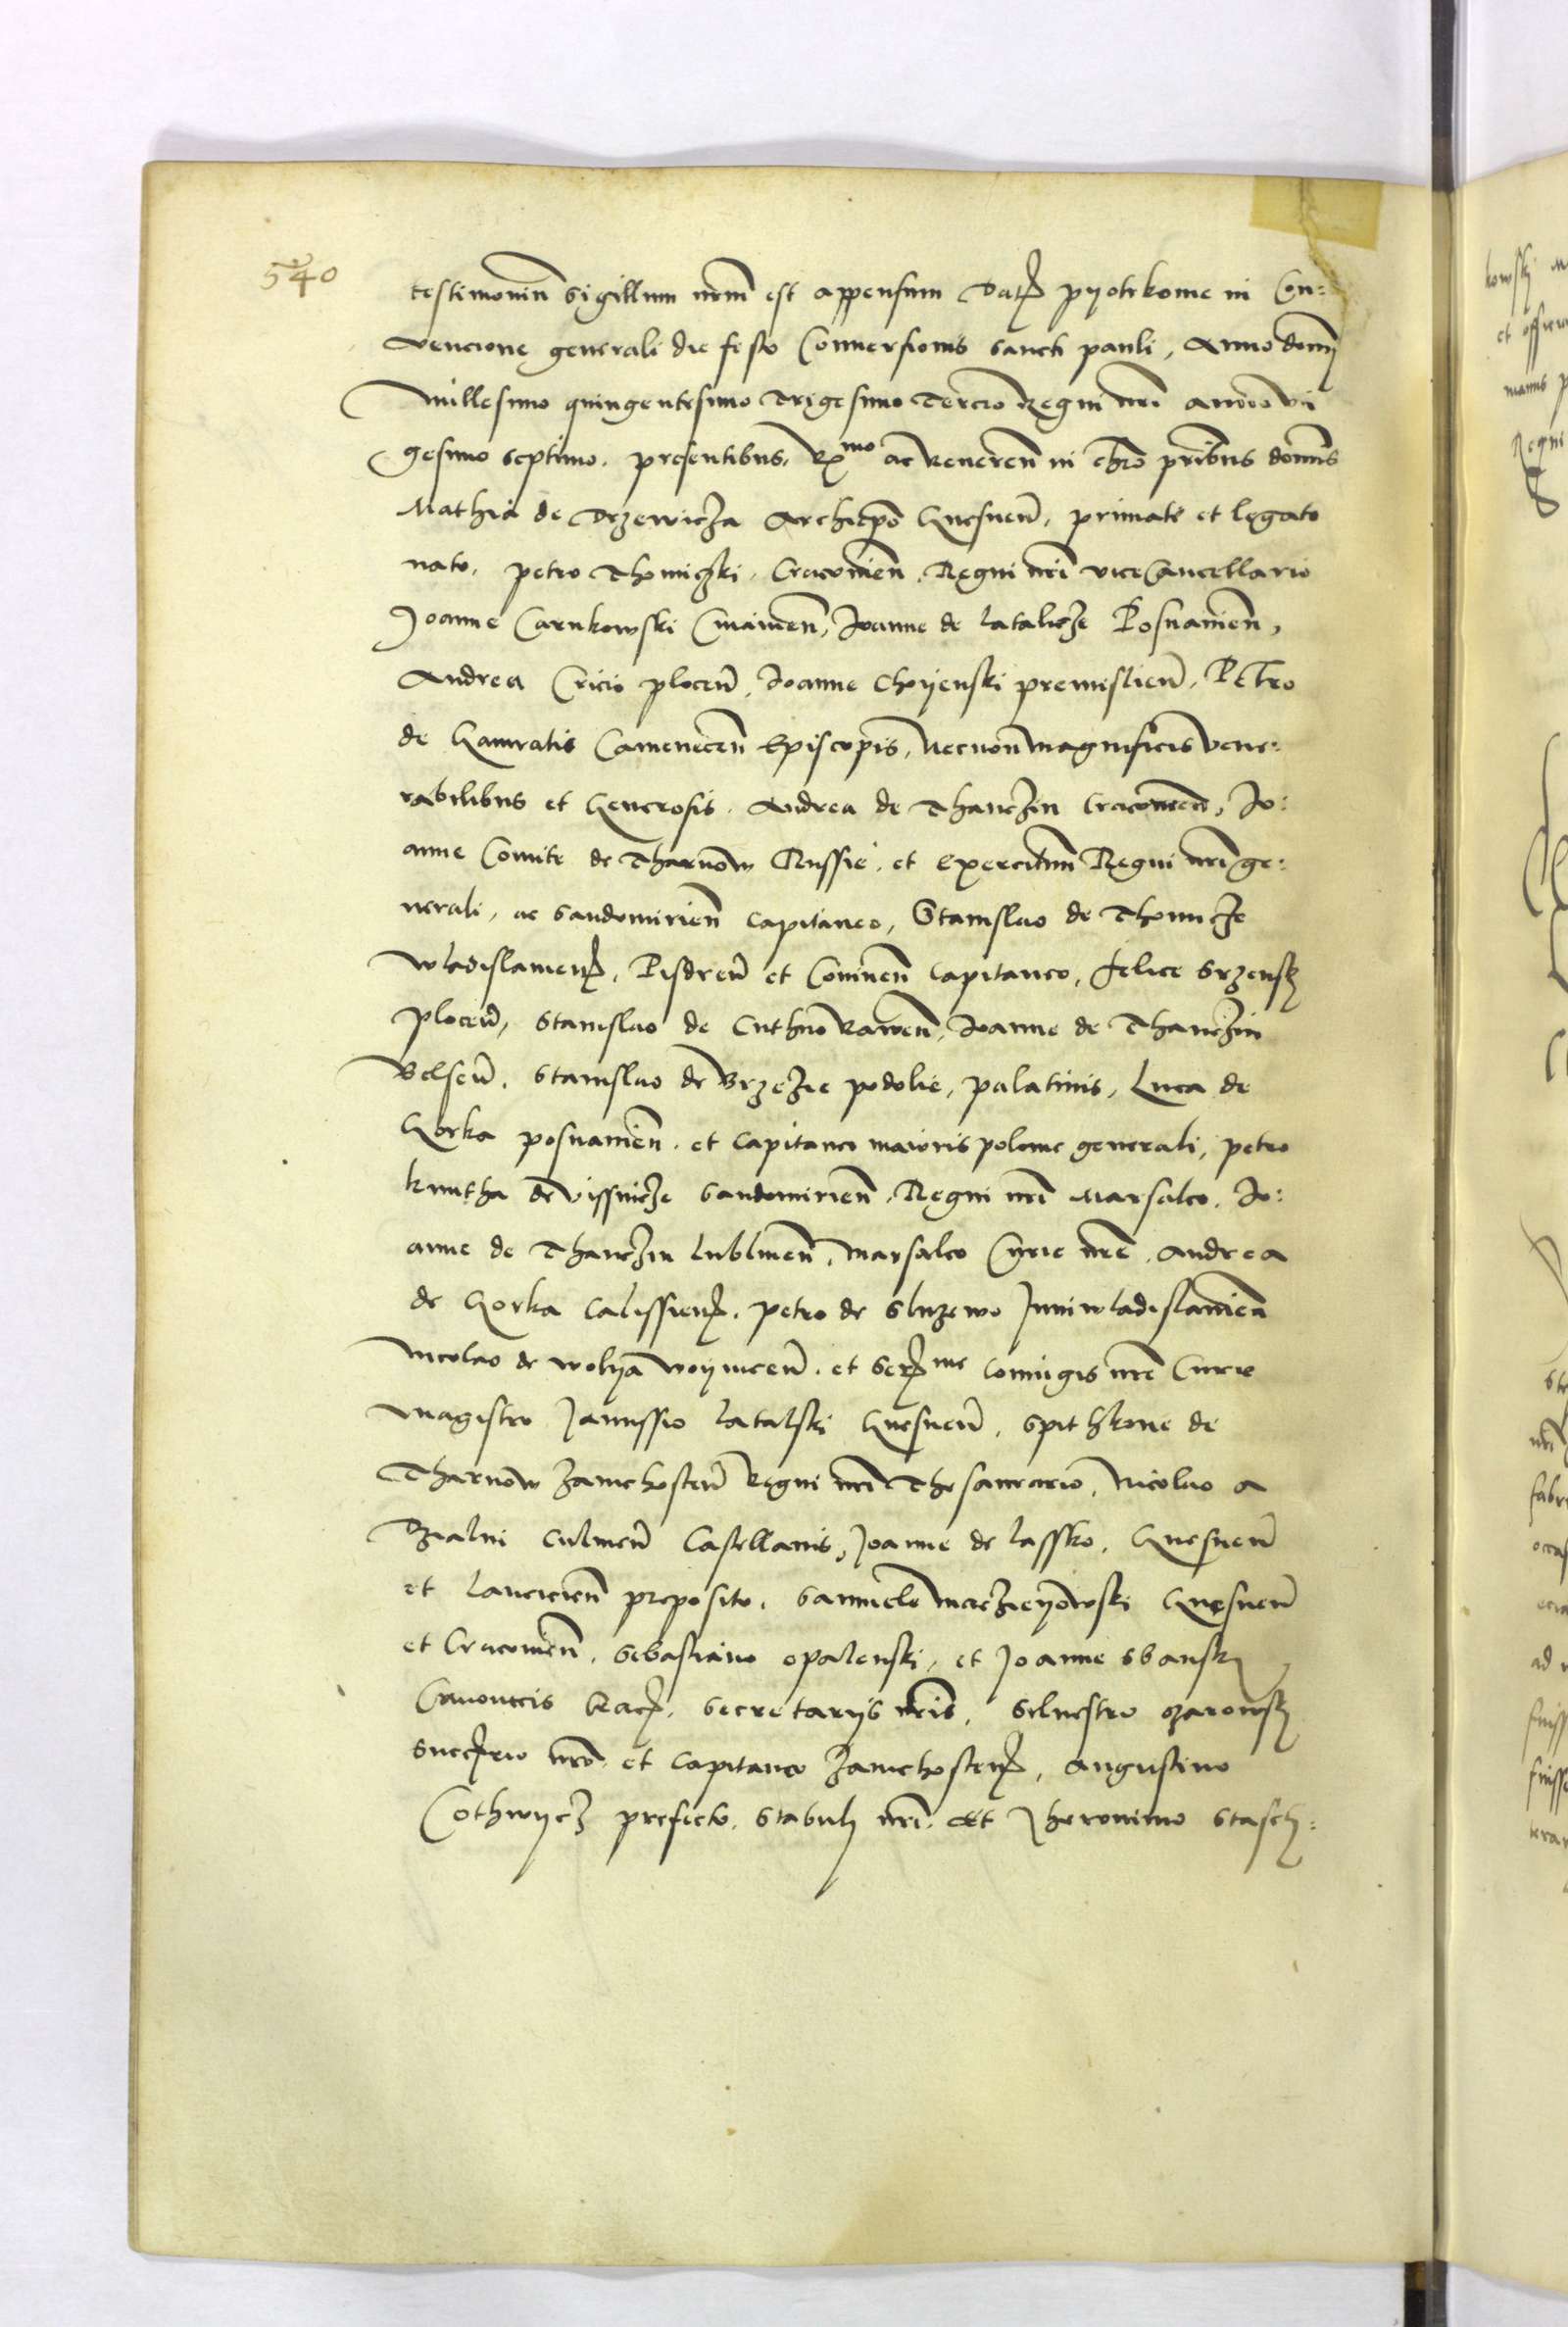 540
testimoniū sigillum nrm̄ est appensum Datꝭ pyotrkouie in Con:
uencione generali die festo Conuersionis sancti pauli, Anno domī
Millesimo quingentesimo Trigesimo Tercio Regni nrī anno vi
gesimo septimo. presentibus, Rx̄mo ac Reuereñ in chrō prībus domīs
Mathia de Drzewicza Archiep̄o Gnesneñ. primate et legato
nato, petro Thomiczki, Cracouieñ, Regni nrī viceCancellario
Joanne Carnkowski Cuiauieñ, Joanne de latalicze Posnanieñ,
Andrea Cricio ploceñ, Joanne Choyenski premislieñ, Petro
de Gamratis Cameneceñ Episcopis, Necnon magnificis vene:
rabilibus et Generosis. Andrea de Thanczin Cracouieñ, Jo:
anne Comite de Tharnow Russie, et Exercituum Regni nrī ge:
nerali, ac Sandomirieñ capitaneo, Stanislao de Thomicze
wladislauieñ, Pisdreñ et Conineñ capitaneo, felice Srzensky
ploceñ, Stanislao de Cuthno Raweñ, Joanne de Thanczin
Belseñ. Stanislao de Brzezie podolie, palatinis, Luca de
Gorka posnanieñ. et capitaneo maioris polonie generali, petro
kmitha de vissnicze Sandomirieñ, Regni nrī Marsalco. Jo:
anne de Thanczin lublineñ, marsalco Curie nrē. Andrea
de Gorka Calissieñ. petro de Sluzewo Juniwladislauieñ
Nicolao de wolya woyniceñ. et Serꝭme coniugis nrē Curie
magistro Janussio latalski Gnesneñ, Spithkone de
Tharnow zawichosteñ Regni nrī Thesaurario, Nicolao a
Dzialni Culmeñ Castellanis, Joanne de lassko, Gnesneñ
et Lancicieñ preposito. Samuele macziejowski Gnesneñ
et Cracouieñ, Sebastiano opalenski, et Joanne Sbansky
Canonicis secretarijs nrīs, Siluestro ozarowsky
nrō et Capitaneo zawichosteñ, Augustino
Cothwycz prefecto, Stabuli nrī. et Jheronimo